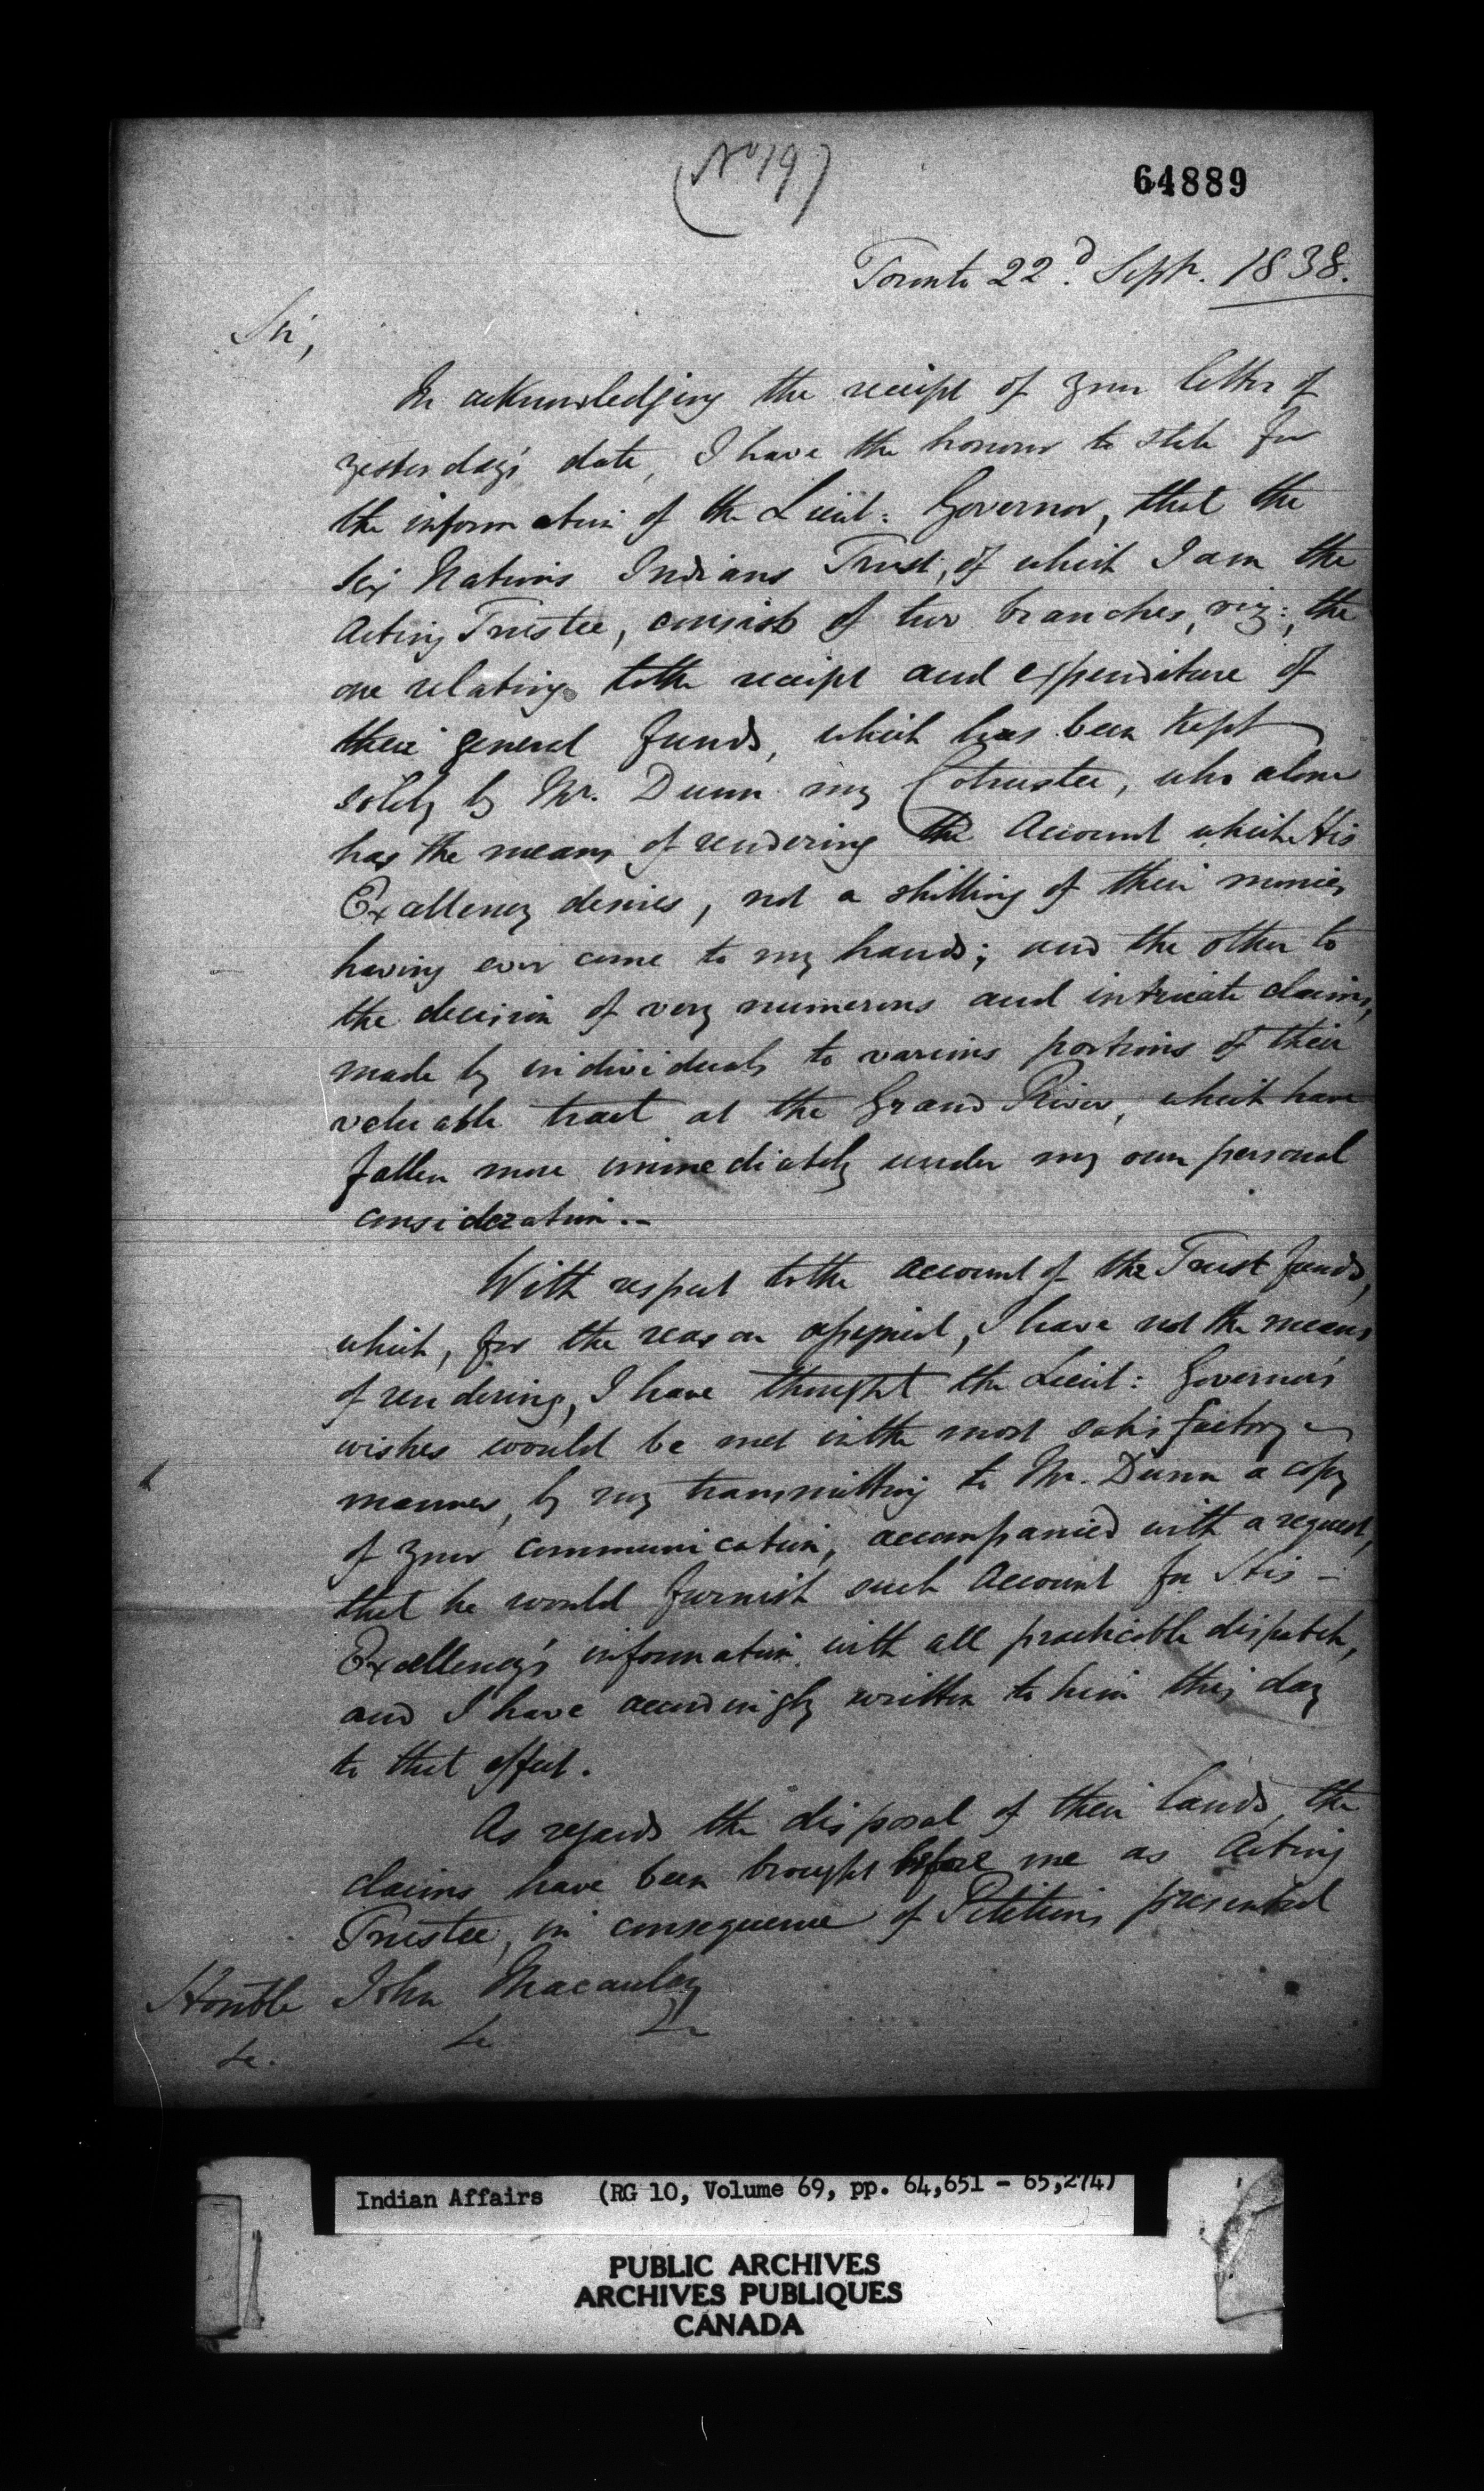 (No 19)
64889
Toronto 22d. Sepr. 1838.
Sir,
In acknowledging the receipt of your letter of
yesterday's date, I have the honour to state for
the information of the Lieut: Governor, that the
Six Nations Indians Trust, of which I am the
Acting Trustee, consists of two branches, viz:, the
one relating to the receipt and expenditure of
their general funds, which has been kept
solely by Mr. Dunn my Cotrustee, who alone
has the means of rendering the Account which His
Excellency desires, not a shilling of their monies
having ever come to my hands; and the other to
the decision of very numerous and intricate claims,
made by individuals to various portions of their
valuable tract at the Grand River, which have
fallen more immediately under my own personal
consideration.—
With respect to the account of the Trust funds,
which, for the reason assigned, I have not the means
of rendering, I have thought the Lieut: Governor's
wishes would be met in the most satisfactory
manner, by my transmitting to Mr. Dunn a copy
of your communication, accompanied with a request,
that he would furnish such Account for His —
Excellency's information with all practicable dispatch,
and I have accordingly written to him this day
to that effect.
As regards the disposal of their lands, the
claims have been brought before me as Acting
Trustee, in consequence of Petitions presented
Honble John Macaulay
&c. &c &c
Indian Affairs (RG 10, Volume 69, pp. 64,651 - 65,274)
PUBLIC ARCHIVES
ARCHIVES PUBLIQUES
CANADA